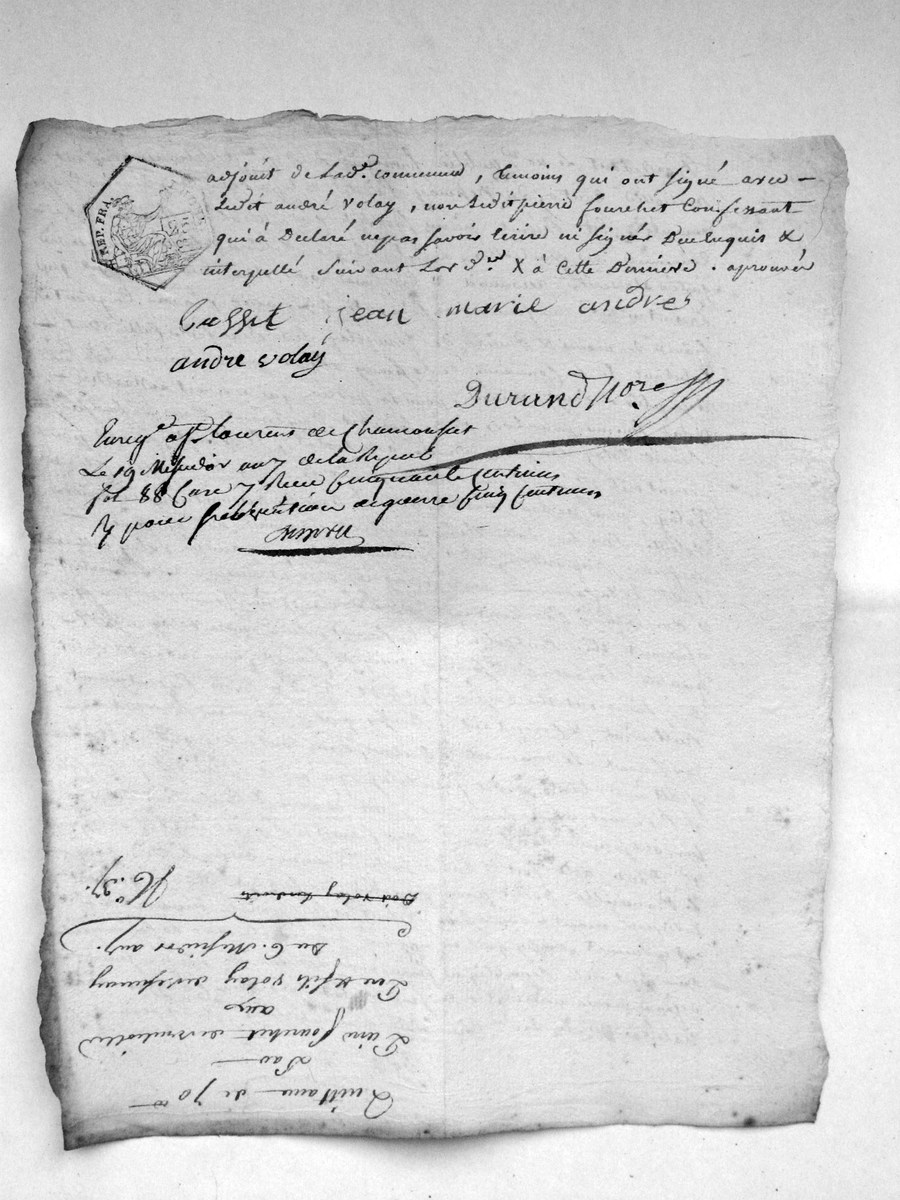 REP. FRA.
adjoint de Lad.e commune, temoins qui ont signé avec
Ledit andré volay, non Ledit pierre fourchet Confessant
qui à Declaré ne pas savoir Ecrire ni signer De ce Enquis &
interpellé suivant Les X à Cette Derniere. aprouvés
jean marie andre
andre volay
Durand No.re
Enreg.é a St Laurent de Chamousset
Le 19 Messidor an 7 de la Repub
fol 88 Case 7 Recu Cinquante Centimes
& pour subvention de guerre Cinq Centimes
Quittance de 70
Par
aux
Pere & fils volay
Du 6. Messidor an 7.
N.° 37.